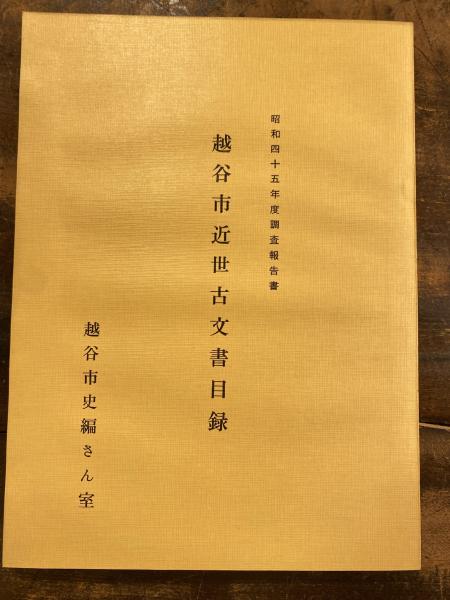 昭和四十五年度調査報告書
越谷市近世古文書目録
越谷市史編さん室